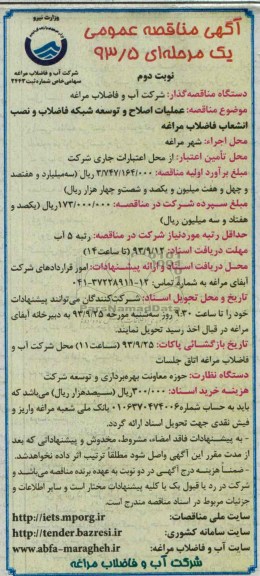 وزارت نیرو
شرکت آب و فاضلاب مراغه
سهامی خاص شماره ثبت ۲۴۴۳
آگهی مناقصه عمومی
یک مرحله‌ای ۹۳/۵
نوبت دوم
دستگاه مناقصه‌گذار: شرکت آب و فاضلاب مراغه
موضوع مناقصه: عملیات اصلاح و توسعه شبکه فاضلاب و نصب
انشعاب فاضلاب مراغه
محل اجراء: شهر مراغه
محل تأمین اعتبار: از محل اعتبارات جاری شرکت
مبلغ برآورد اولیه مناقصه: ۳/۷۴۷/۱۶۴/۰۰۰ ریال (سه‌میلیارد و هفتصد
و چهل و هفت میلیون و یکصد و شصت‌و چهار هزار ریال)
مبلغ سپرده شرکت در مناقصه: ۱۷۳/۰۰۰/۰۰۰ریال (یکصد و
هفتاد و سه میلیون ریال)
حداقل رتبه موردنیاز شرکت در مناقصه: رتبه ۵ آب
مهلت دریافت اسناد: ۹۳/۹/۱۲ (تا ساعت۱۴)
محل دریافت اسناد و ارائه پیشنهادات: امور قراردادهای شرکت
آبفای مراغه به شماره تماس: ۱۲-۳۷۲۲۸۹۱۱-۰۴۱
تاریخ و محل تحویل اسناد: شرکت‌کنندگان می‌توانند پیشنهادات
خود را تا ساعت ۹:۳۰ روز سه‌شنبه مورخه ۹۳/۹/۲۵ به دبیرخانه آبفای
مراغه در قبال اخذ رسید تحویل نمایند.
تاریخ بازگشائی پاکات: ۹۳/۹/۲۵ (ساعت۱۱) محل شرکت آب و
فاضلاب مراغه اتاق جلسات
دستگاه نظارت: حوزه معاونت بهره‌برداری و توسعه شرکت
هزینه خرید اسناد: ۳۰۰/۰۰۰ریال (سیصدهزار ریال) می‌باشد که
باید به حساب شماره ۰۱۰۶۳۷۰۴۷۴۰۰۶ بانک ملی شعبه مراغه واریز و
فیش نقدی جهت تحویل اسناد ارائه گردد.
- به پیشنهادات فاقد امضاء، مشروط، مخدوش و پیشنهاداتی که بعد
از مدت مقرر این آگهی واصل شود مطلقاً ترتیب اثر داده نخواهدشد.
- ضمناً هزینه درج آگهی در دو نوبت به عهده برنده مناقصه می‌باشد و
شرکت در رد یا قبول یک یا کلیه پیشنهادات مختار است و سایر اطلاعات و
جزئیات مربوط در اسناد مناقصه مندرج است.
سایت ملی مناقصات: http://iets.mporg.ir
سایت سامانه کشوری: http://tender.bazresi.ir
سایت آب و فاضلاب مراغه: www.abfa-maragheh.ir
شرکت آب و فاضلاب مراغه